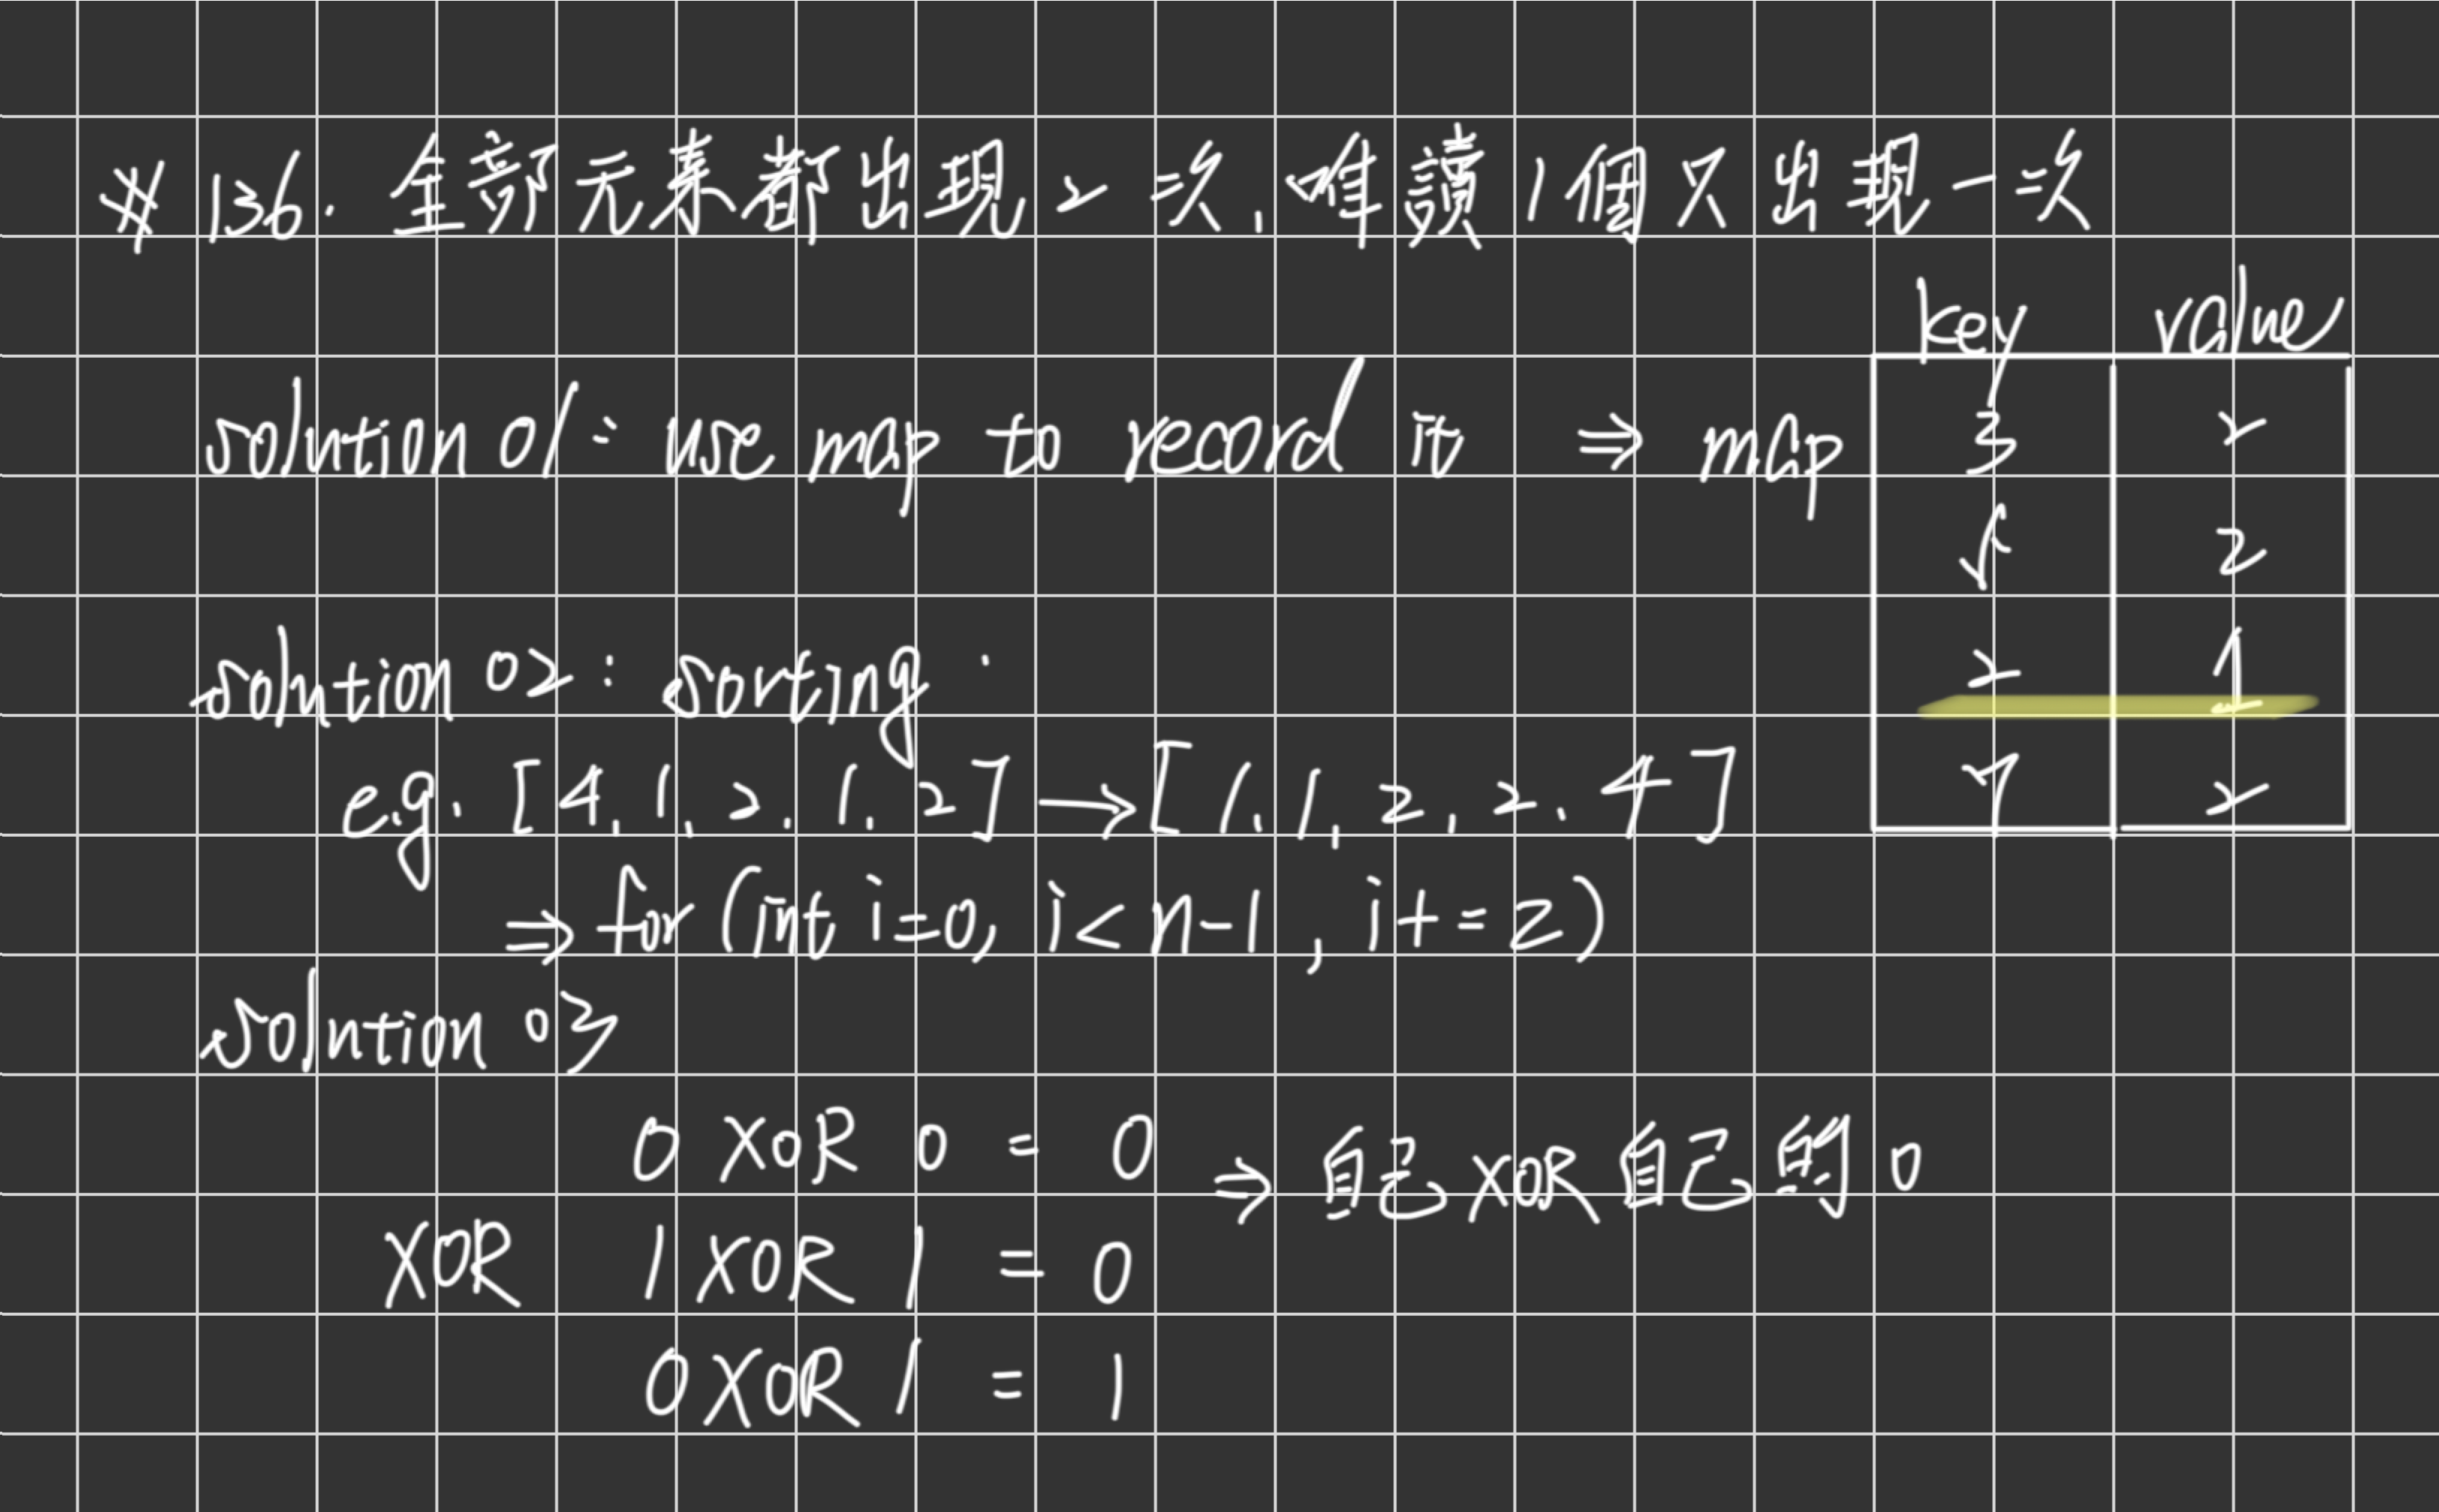 #136. 全部元素都出現2次,唯讀1個只出現一次
key value
solution 01: use map to record it ⇒ map 3 2
5 2
2 1
7 2
solution 02: sorting.
e.g. [4,1,2,1,2] → [1,1,2,2,4]
⇒ for (int i=0, i<n-1, i+=2)
solution 03
0 XOR 0 = 0 ⇒ 自己 XOR 自己 為 0
XOR 1 XOR 1 = 0
0 XOR 1 = 1